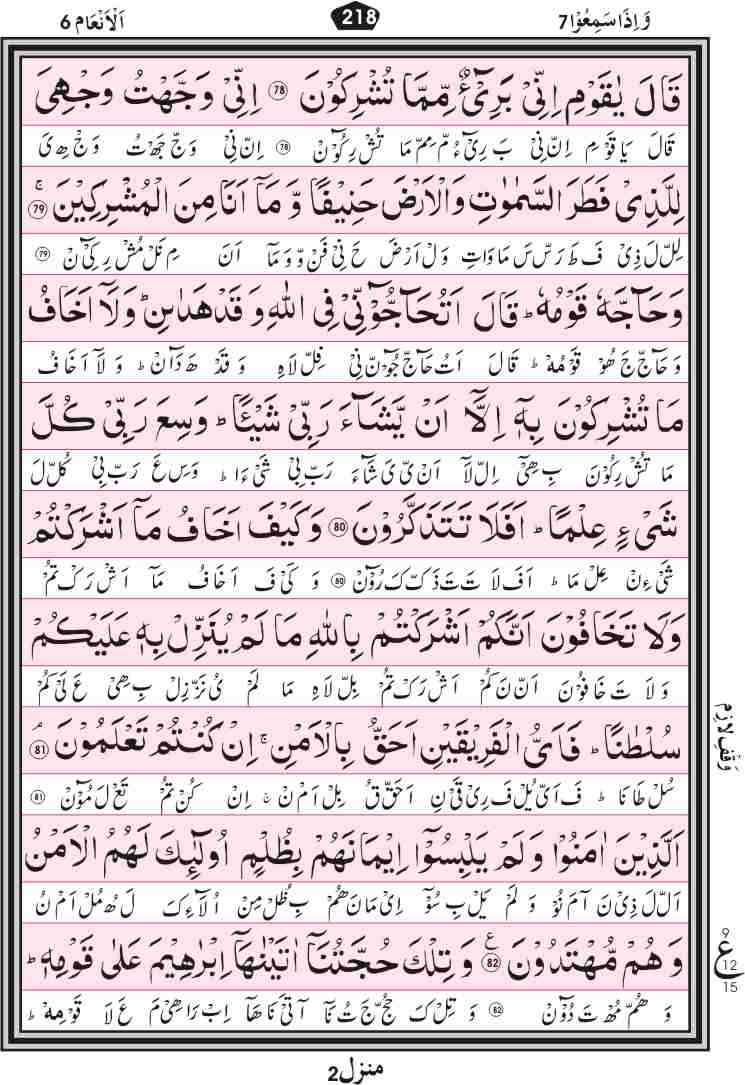 وَاِذَا سَمِعُوۡا 7 218 اَلۡاَنۡعَام 6
قَالَ يٰقَوۡمِ اِنِّىۡ بَرِىۡٓءٌ مِّمَّا تُشۡرِكُوۡنَ ﴿78﴾ اِنِّىۡ وَجَّهۡتُ وَجۡهِىَ
قَالَ يَا قَوۡ مِ اِنۡ نِىۡ بَ رِىۡٓ ءُ مّ مِمّ مَا تُشۡ رِكُوۡنۡ ﴿78﴾ اِنۡ نِىۡ وَجۡ جَهۡ تُ وَجۡ هِ ىَ
لِلَّذِىۡ فَطَرَ السَّمٰوٰتِ وَالۡاَرۡضَ حَنِيۡفًا وَّمَاۤ اَنَا مِنَ الۡمُشۡرِكِيۡنَ​ۚ ﴿79﴾
لِلۡ لَ ذِىۡ فَ طَ رَسۡ سَ مَا وَاتِ وَلۡ اَرۡ ضَ حَ نِىۡ فَنۡ وَ وَمَاۤ اَنَ مِ نَلۡ مُشۡ رِ كِىۡٓ نۡ ﴿79﴾
وَحَآجَّهٗ قَوۡمُهٗ ​ؕ قَالَ اَتُحَآجُّوۡٓنِّىۡ فِى اللّٰهِ وَقَدۡ هَدٰٮنِ​ ؕ وَلَاۤ اَخَافُ
وَ حَآجۡ جَ هُوۡ قَوۡ مُهۡ ؕ قَالَ اَتُ حَآجۡ جُوۡٓنۡ نِىۡ فِلۡ لَاهِ وَ قَدۡ هَ دَآنۡ ؕ وَ لَآ اَ خَا فُ
مَا تُشۡرِكُوۡنَ بِهٖۤ اِلَّاۤ اَنۡ يَّشَآءَ رَبِّىۡ شَيۡئًـا ​ؕ وَسِعَ رَبِّىۡ كُلَّ
مَا تُشۡ رِكُوۡنَ بِ هِىۡٓ اِلۡ لَآ اَنۡ ىۡ ىَ شَآءَ رَبۡ بِىۡ شَىۡ ءَا ؕ وَسِ عَ رَبۡ بِىۡ كُلۡ لَ
شَىۡءٍ عِلۡمًا​ ؕ اَفَلَا تَتَذَكَّرُوۡنَ ﴿80﴾ وَكَيۡفَ اَخَافُ مَاۤ اَشۡرَكۡتُمۡ
شَىۡ ءِنۡ عِلۡ مَا ؕ اَفَ لَا تَ تَ ذَكۡ كَ رُوۡٓنۡ ﴿80﴾ وَ كَىۡ فَ اَ خَافُ مَآ اَشۡ رَكۡ تُمۡ
وَلَا تَخَافُوۡنَ اَنَّكُمۡ اَشۡرَكۡتُمۡ بِاللّٰهِ مَا لَمۡ يُنَزِّلۡ بِهٖ عَلَيۡكُمۡ
وَ لَا تَ خَا فُوۡنَ اَنۡ نَ كُمۡ اَشۡ رَكۡ تُمۡ بِلۡ لَاهِ مَا لَمۡ يُ نَزۡ زِلۡ بِ هِىۡ عَ لَىۡ كُمۡ
سُلۡطٰنًا​ ؕ فَاَىُّ الۡفَرِيۡقَيۡنِ اَحَقُّ بِالۡاَمۡنِ​ۚ اِنۡ كُنۡتُمۡ تَعۡلَمُوۡنَ​ۘ ﴿81﴾
وَقۡفِ لَازِم
سُلۡ طَا نَا ؕ فَ اَىۡ يُلۡ فَ رِىۡ قَىۡ نِ اَحَقۡ قُ بِلۡ اَمۡ نۡ ۚ اِنۡ كُنۡ تُمۡ تَعۡ لَ مُوۡٓنۡ ﴿81﴾
اَلَّذِيۡنَ اٰمَنُوۡا وَلَمۡ يَلۡبِسُوۡۤا اِيۡمَانَهُمۡ بِظُلۡمٍ اُولٰۤئِكَ لَهُمُ الۡاَمۡنُ
اَلۡ لَ ذِىۡ نَ آمَ نُوۡ وَ لَمۡ يَلۡ بِ سُوۡٓ اِىۡ مَا نَ هُمۡ بِ ظُلۡ مِنۡ اُ لَآ ءِ كَ لَ هُ مُلۡ اَمۡ نُ
وَهُمۡ مُّهۡتَدُوۡنَ ﴿82﴾ وَتِلۡكَ حُجَّتُنَاۤ اٰتَيۡنٰهَاۤ اِبۡرٰهِيۡمَ عَلٰى قَوۡمِهٖ​ؕ
ع 9 12 15
وَ هُمۡ مُهۡ تَ دُوۡٓنۡ ﴿82﴾ وَ تِلۡ كَ حُجۡ جَ تُ نَآ آتَىۡ نَا هَآ اِبۡ رَا هِىۡ مَ عَ لَا قَوۡ مِهۡ ؕ
منزل 2